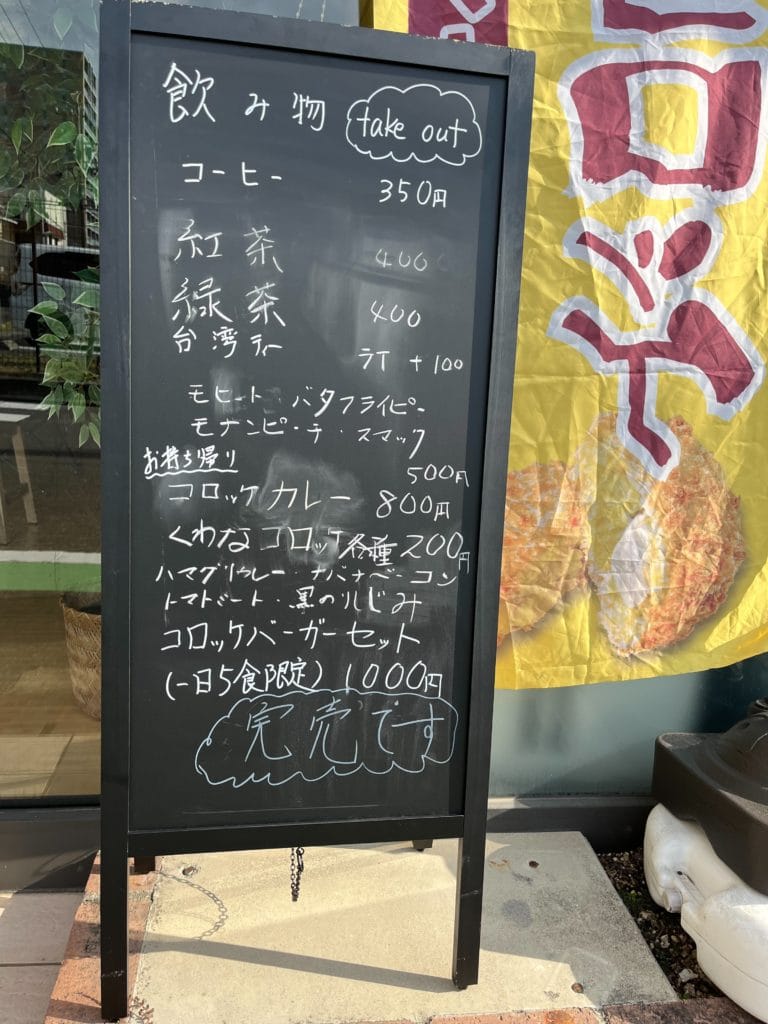 飲み物 take out
コーヒー 350円
紅茶 400
緑茶 400
台湾ティー
ラT +100
モヒート・バタフライピー
モナンピーチ・スマック
500円
お持ち帰り
コロッケカレー 800円
くわなコロッケ各種 200円
ハマグリカレー ナバナベーコン
トマトミート・黒のりしじみ
コロッケバーガーセット
(一日5食限定) 1000円
完売です